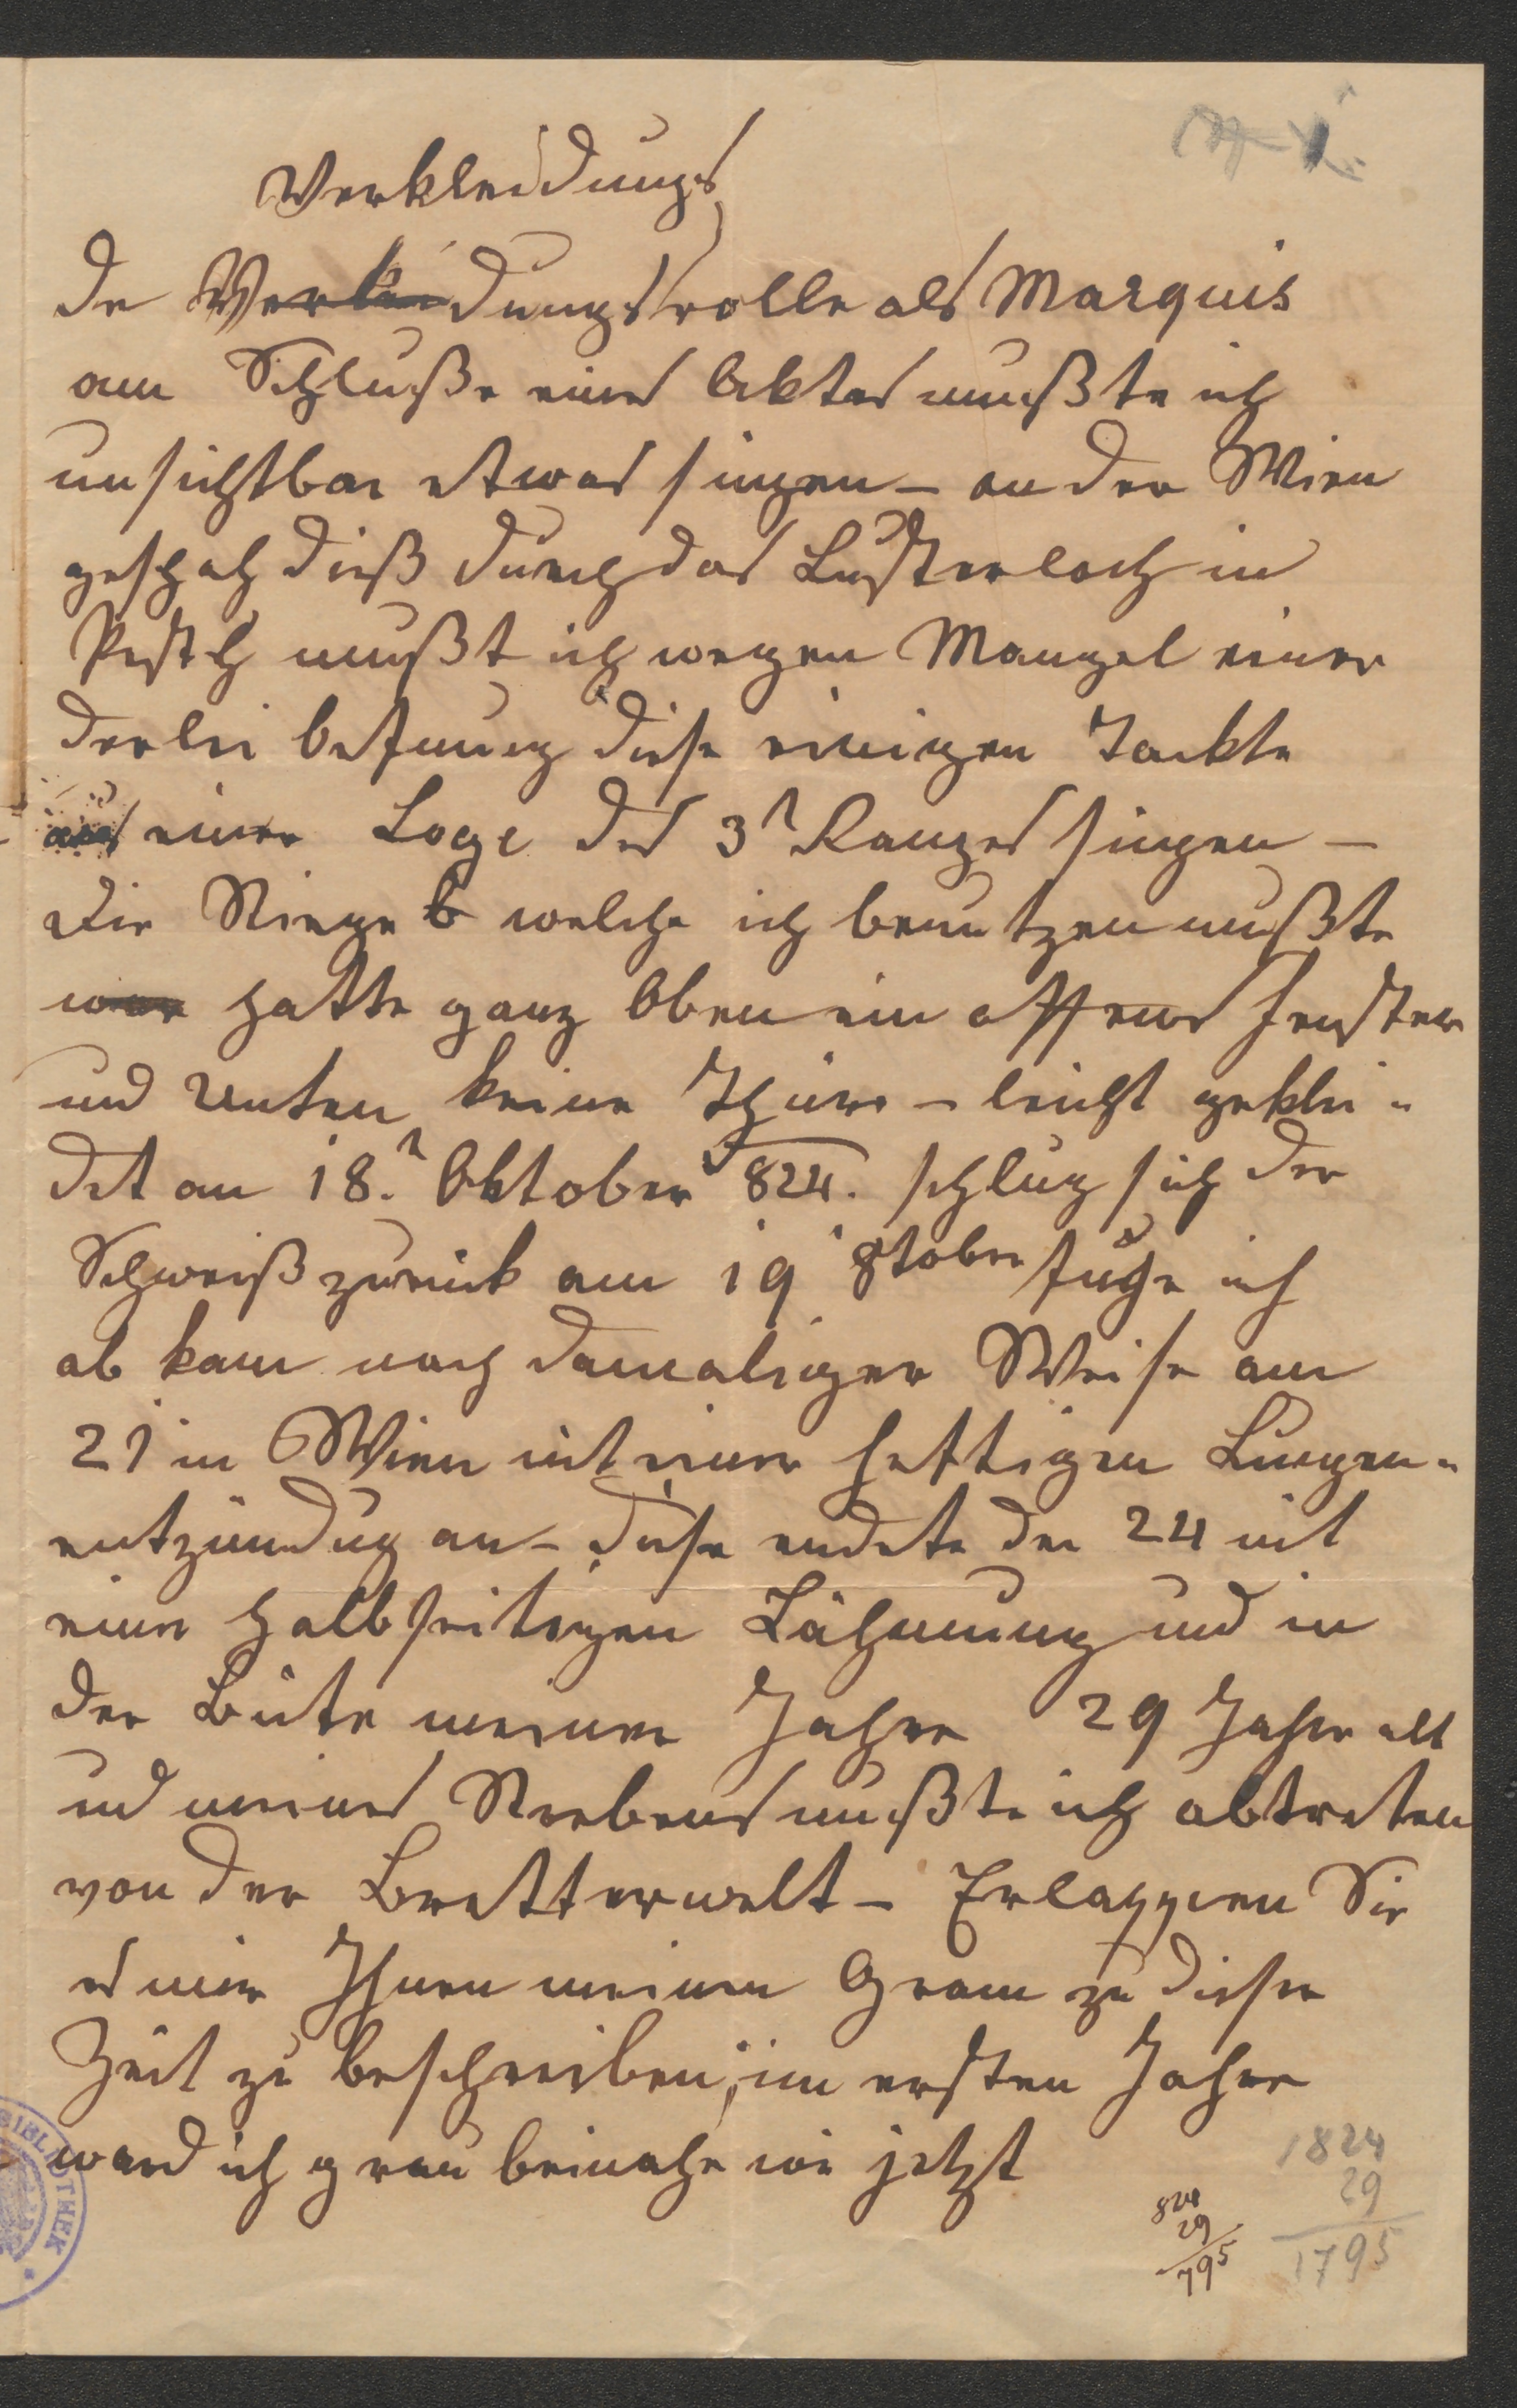 Verkleidungs
De Verkleidungsrolle als Marquis
am Schluße eines Aktes mußte ich
unsichtbar etwas singen – an der Wien
geschah dieß durch das Lusterloch in
Pesth mußt ich wegen Mangel einer
derlei Oefnung diese einigen Tackte
aus einer Loge des 3n Ranges singen –
Die Stiege welche ich benutzen mußte
war hatte ganz Oben ein offenes Fenster
und Unten keine Thüre – leicht geklei-
det am 18.n Oktober 824. schlug sich der
Schweiß zurück am 19 8tober fuhr ich
ab kam nach damaliger Weise am
21 in Wien mit einer heftigen Lungen-
entzündug an – diese endete den 24 mit
einer halbseitigen Lähmung und in
der Blüte meiner Jahre 29 Jahre alt
und meines Strebens mußte ich abtreten
von der Bretterwelt – Erlassen Sie
es mir Ihnen meinen Gram zu dieser
Zeit zu beschreiben, im ersten Jahre
ward ich grau beinahe wie jetzt
1824
29
1795
824
29
795
BIBLIOTHEK